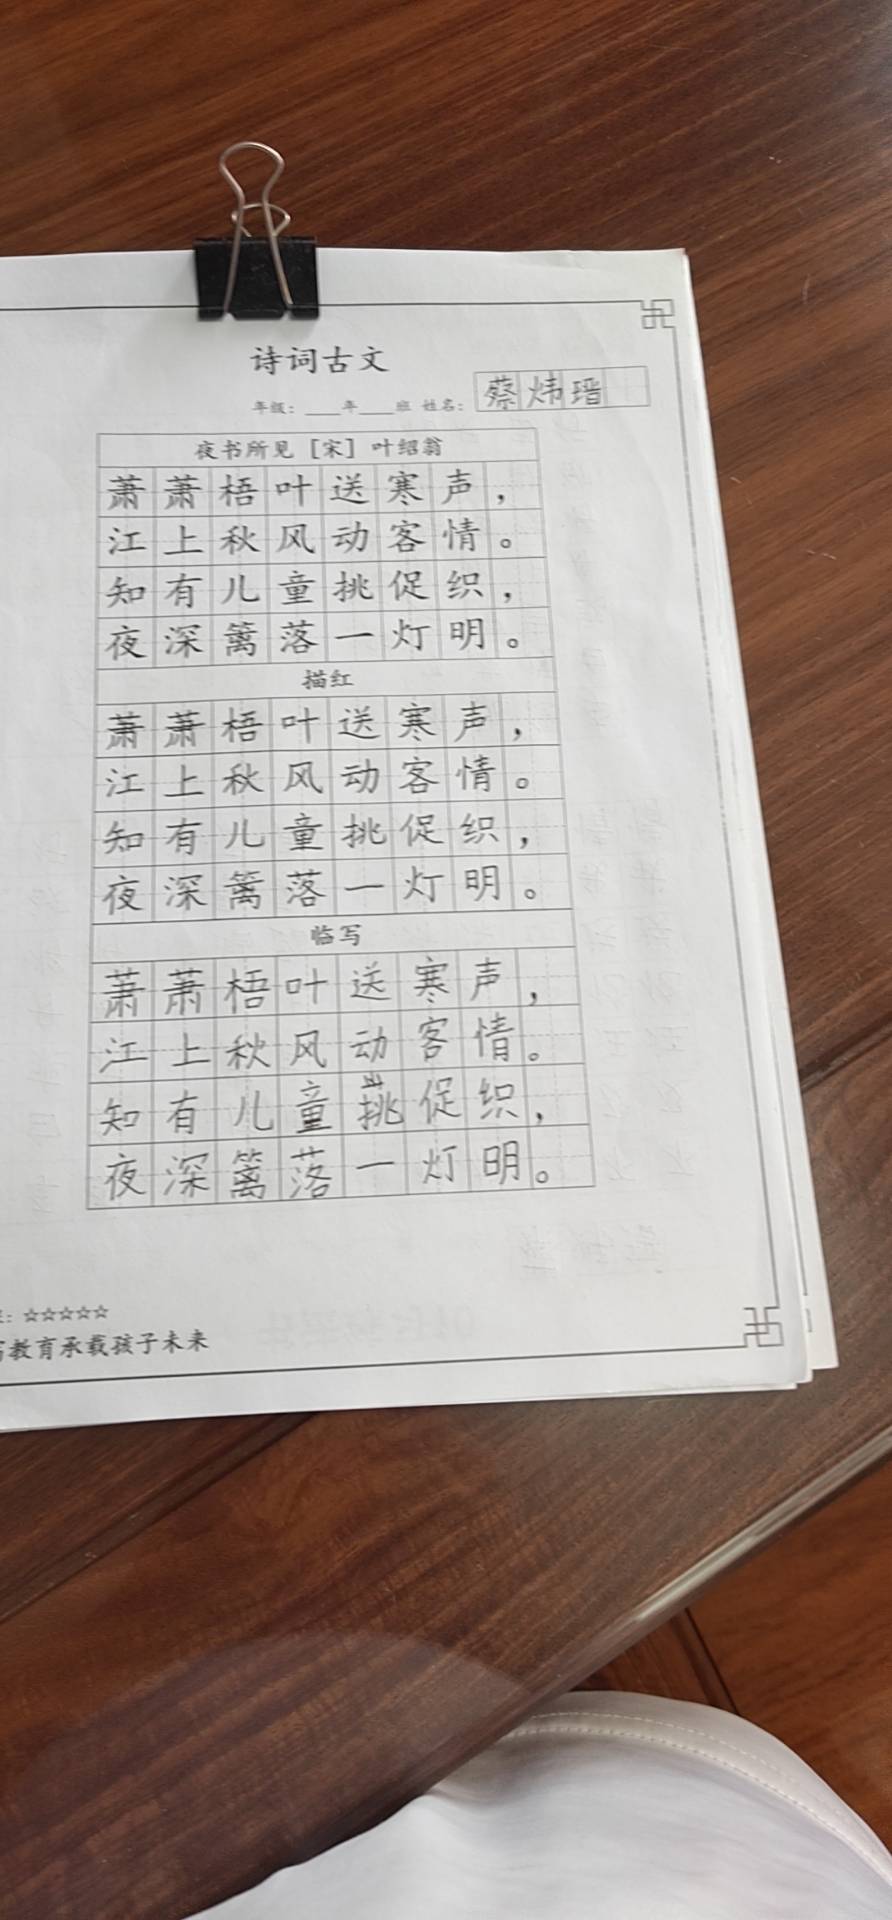 诗词古文
年级：____年____班 姓名：蔡炜瑨
夜书所见［宋］叶绍翁
萧萧梧叶送寒声，
江上秋风动客情。
知有儿童挑促织，
夜深篱落一灯明。
描红
萧萧梧叶送寒声，
江上秋风动客情。
知有儿童挑促织，
夜深篱落一灯明。
临写
萧萧梧叶送寒声，
江上秋风动客情。
知有儿童挑促织，
夜深篱落一灯明。
：☆☆☆☆☆
教育承载孩子未来